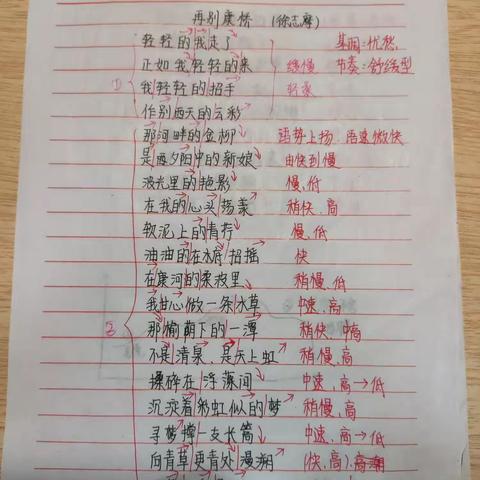 再别康桥 (徐志摩)
轻轻的我走了 基调:忧愁
正如我轻轻的来 缓慢 节奏:舒缓型
① 我轻轻的招手 轻柔
作别西天的云彩
那河畔的金柳 语势上扬,语速微快
是西夕阳中的新娘 由快到慢
波光里的艳影 慢、低
在我的心头荡漾 稍快、高
软泥上的青荇 慢、低
油油的在水底招摇 快
在康河的柔波里 稍慢、低
我甘心做一条水草 中速、高
② 那榆荫下的一潭 稍快、中高
不是清泉、是天上虹 稍慢、高
揉碎在浮藻间 中速、高→低
沉淀着彩虹似的梦 稍慢、高
寻梦撑一支长篙 中速、高→低
向青草更青处漫溯 (快、高)